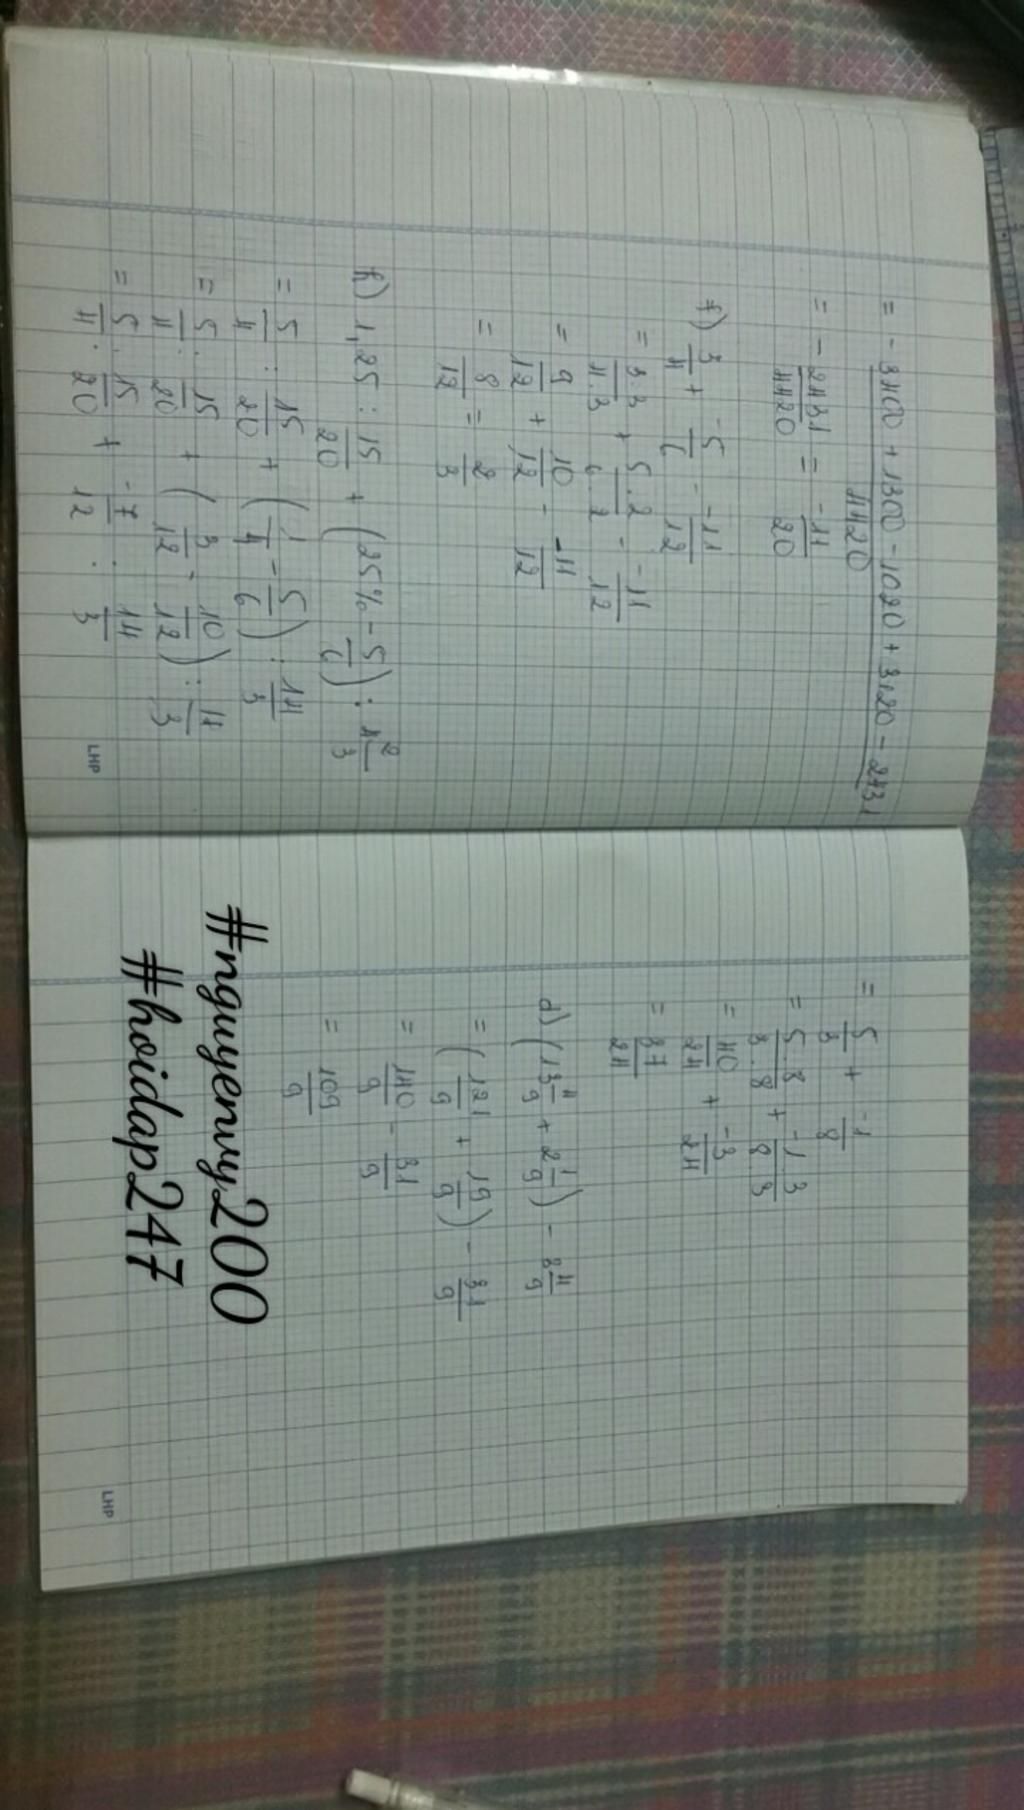 = -3400 + 1300 - 1020 + 3120 - 2431
4420
= -2431/4420 = -11/20
f) 3/4 + -5/6 - -11/12
= 3.3/4.3 + 5.2/6.2 - -11/12
= 9/12 + 10/12 - -11/12
= 8/12 = 2/3
h) 1,25 : 15/20 + (25% - 5/6) : 4 2/3
= 5/4 : 15/20 + (1/4 - 5/6) : 14/3
= 5/4 : 15/20 + (3/12 - 10/12) : 14/3
= 5/4 . 15/20 + -7/12 . 14/3
LHP
= 5/3 + -1/8
= 5.8/3.8 + -1.3/8.3
= 40/24 + -3/24
= 37/24
d) (13 4/9 + 2 1/9) - 3 4/9
= (121/9 + 19/9) - 31/9
= 140/9 - 31/9
= 109/9
#nguyenvy200
#hoidap247
LHP